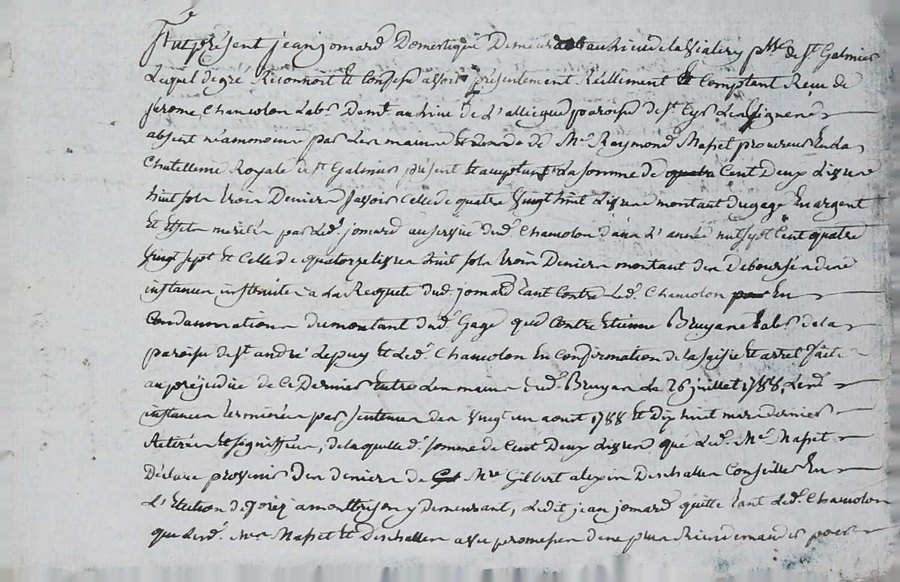 fut présent jean jomard Domestique Demeurant au lieu de la Vialery psse de st Galmier
Lequel de gré Reconnoit et Confesse avoir présentement Réellement et Comptant Reçu de
jerome Chamolon Labr. Demt. au lieu de L'allieque paroisse de st Cyr Les Vignes
absent neammoins par Les mains et deniers de Me. Raymond Masset procureur En la
Chatellenie Royale de st Galmier présent et acceptant La somme de quatre Cent Deux Livres
huit sols trois Deniers savoir Celle de quatre Vingt huit Livres montant du gage En argent
Et mérités par Led. jomard au service dud. Chamolon Dans L'année mil sept Cent quatre
Vingt sept et Celle de quatorze Livres huit sols trois Deniers montant des Déboursés des
instances instruites a La Requete dud. jomard tant Contre Led. Chamolon par En
Condamnation du montant dud. Gage que Contre Etienne Bruyas Labr. de la
paroisse de st andré Le puy et Led. Chamolon En Confirmation de la saisie et arret faite
au préjudice de Ce Dernier Entre Les mains dud. Bruyas Le 26 juillet 1788, Lesd.
instances terminées par sentences des Vingt un aout 1788 et Dix huit mars dernier
et signiffiées, de laquelle d. somme de Cent Deux Livres que Led. Me. Masset
Déclare provenir des deniers de Mre Gilbert alexis Deschaller Conseiller En
L'Election de forez a montbrison y Demeurant, Ledit jean jomard quitte tant Led. Chamolon
que Lesd. Masset et Deschaller avec promesse de ne plus Rien demander pour